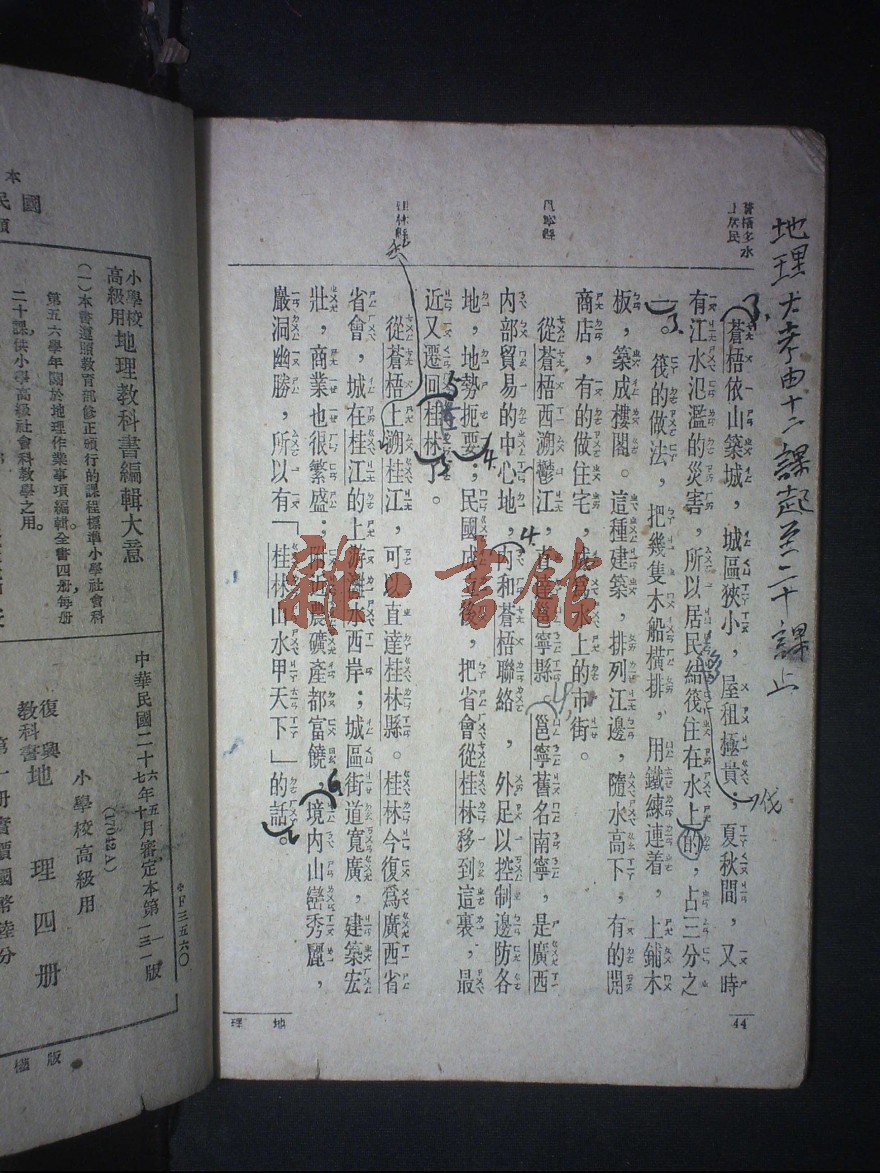 地理大考由十二課起至二十課止
蒼梧多水
上居民
邕寧縣
桂林縣
蒼梧依山築城，城區狹小，屋租極貴；夏秋間，又時
有江水氾濫的災害，所以居民結筏住在水上的，占三分之
一。筏的做法，把幾隻木船橫排，用鐵練連着，上鋪木
板，築成樓閣。這種建築，排列江邊，隨水高下，有的開
商店，有的做住宅，成爲水上的市街。
從蒼梧西溯鬱江，直達邕寧縣。邕寧舊名南寧，是廣西
內部貿易的中心地，內和蒼梧聯絡，外足以控制邊防各
地，地勢扼要；民國成立後，把省會從桂林移到這裏，最
近又遷回桂林了。
從蒼梧上溯桂江，可以直達桂林縣。桂林今復爲廣西省
省會，城在桂江的上游灕水西岸；城區街道寬廣，建築宏
壯，商業也很繁盛：附近農礦產都富饒，境內山巒秀麗，
巖洞幽勝，所以有「桂林山水甲天下」的話。
3.
3.
4
4
4.
5
5
6
伐
44
地理
雜·書館
本
國民
小學校
高級用
地理教科書編輯大意
(一)本書遵照教育部修正頒行的課程標準小學社會科
第五六學年關於地理作業事項編輯全書四册每册
二十課供小學高級社會科教學之用。
中華民國二十六年五月審定本第一三一版
七十
(17042A)
小學校高級用
復興
教科書
地理四册
第一册實價國幣陸分
＊F三五六〇
版權